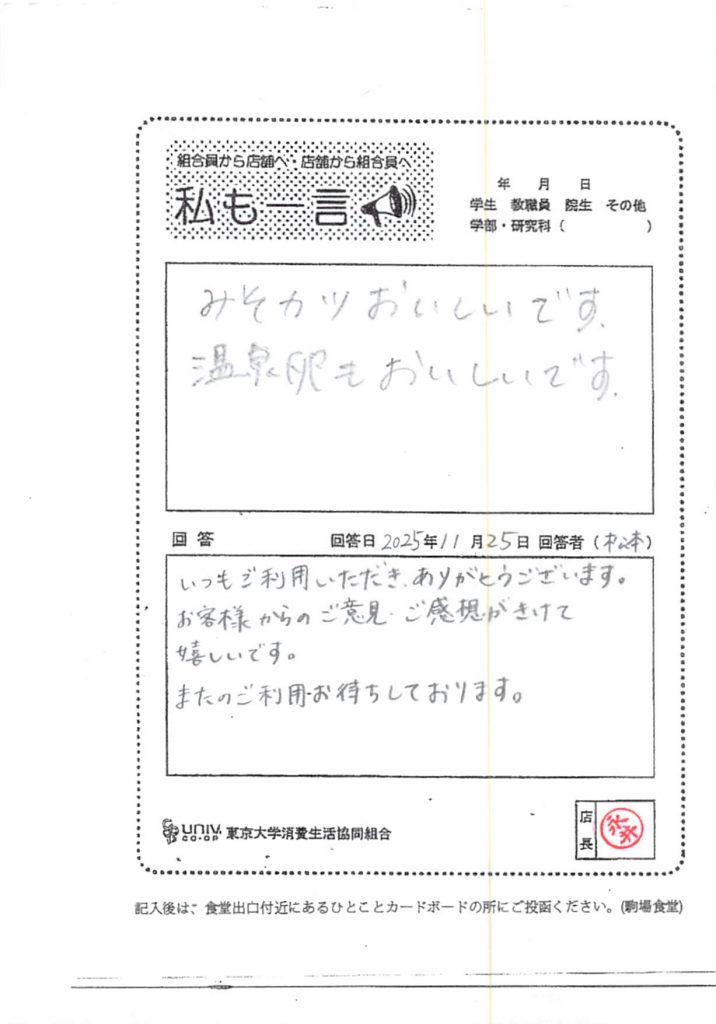 組合員から店舗へ・店舗から組合員へ
私も一言
年 月 日
学生 教職員 院生 その他
学部・研究科( )
みそカツおいしいです.
温泉卵もおいしいです.
回答 回答日 2025年11月25日 回答者(松本)
いつもご利用いただき、ありがとうございます。
お客様からのご意見・ご感想がきけて
嬉しいです。
またのご利用お待ちしております。
UNIV. CO-OP 東京大学消費生活協同組合
店長
記入後は、食堂出口付近にあるひとことカードボードの所にご投函ください。(駒場食堂)